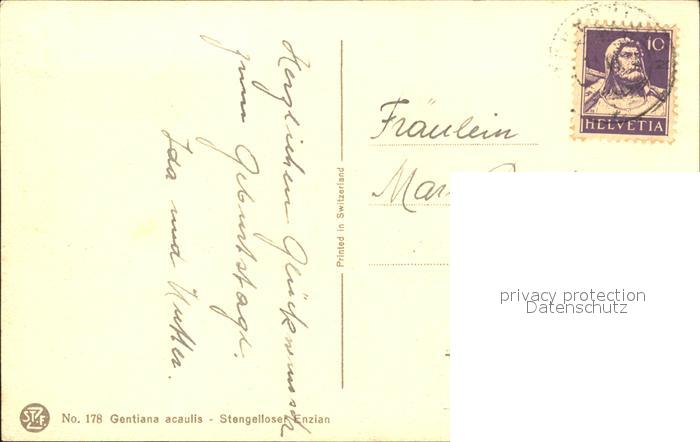 Herzlichen Glückwunsch
zum Geburtstage.
Ida und Mutter.
Printed in Switzerland
10
HELVETIA
Fräulein
privacy protection
Datenschutz
STZF
No. 178 Gentiana acaulis - Stengelloser Enzian